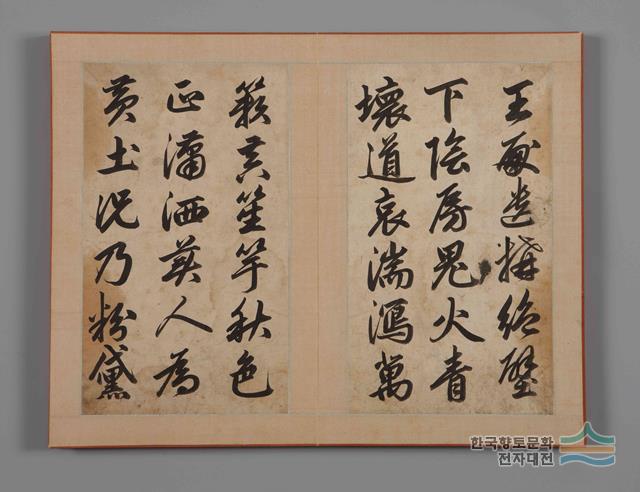 王殿遺構絶壁
下陰房鬼火青
壞道哀湍瀉萬
籟真笙竽秋色
正瀟洒美人為
黃土况乃粉黛
한국향토문화
전자대전